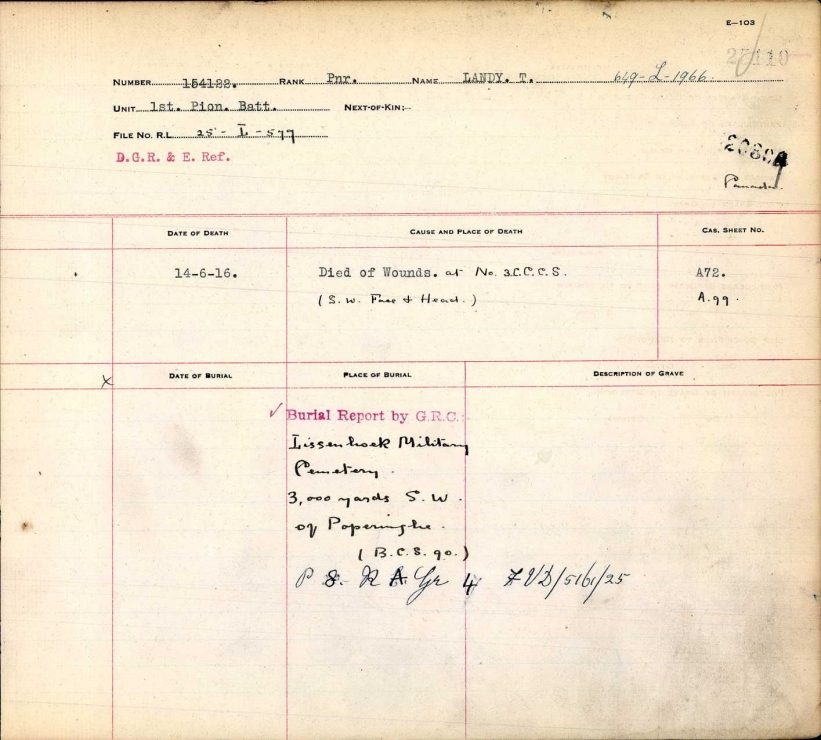 E—103
NUMBER 154122. RANK Pnr. NAME LANDY. T. 649-L-1966.
UNIT 1st. Pion. Batt. NEXT-OF-KIN:—
FILE NO. R.L. 25-L-577
D.G.R. & E. Ref.
DATE OF DEATH CAUSE AND PLACE OF DEATH CAS. SHEET NO.
14-6-16. Died of Wounds. at No. 3.C.C.S. A72.
(S.W. Face & Head.) A.99.
DATE OF BURIAL PLACE OF BURIAL DESCRIPTION OF GRAVE
x
✓ Burial Report by G.R.C.:-
Lissenhoek Military
Cemetery.
3,000 yards S.W.
of Poperinghe.
(B.C.S. 90.)
P 8. R A Gr 4